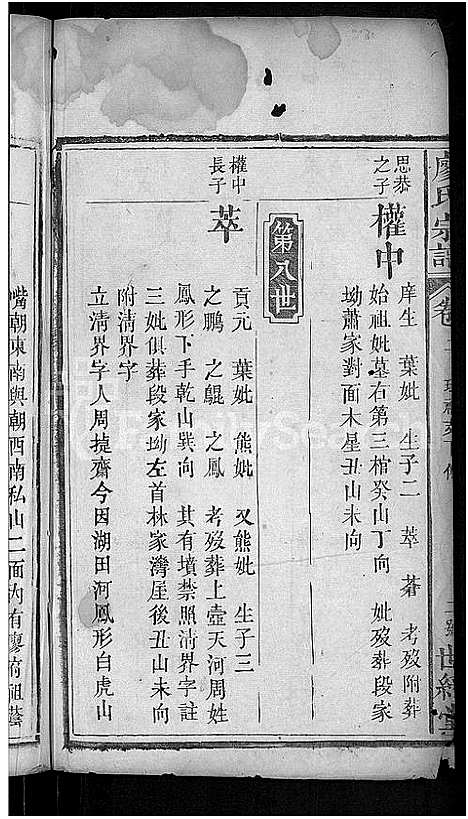 廖氏宗譜
卷
世綵堂
思恭之子
權中
庠生 葉妣 生子二 萃 莟 考歿附葬
始祖妣墓右第三棺癸山丁向 妣歿葬段家
坳蕭家對面木星丑山未向
第八世
權中長子
萃
貢元 葉妣 熊妣 又熊妣 生子三
之鵬 之鯤 之鳳 考歿葬上壺天河周姓
鳳形下手乾山巽向 其有墳禁照淸界字註
三妣俱葬段家坳左首林家灣屋後丑山未向
附淸界字
立淸界字人周捷齋今因湖田河鳳形白虎山
嘴朝東南與朝西南私山二面內有廖